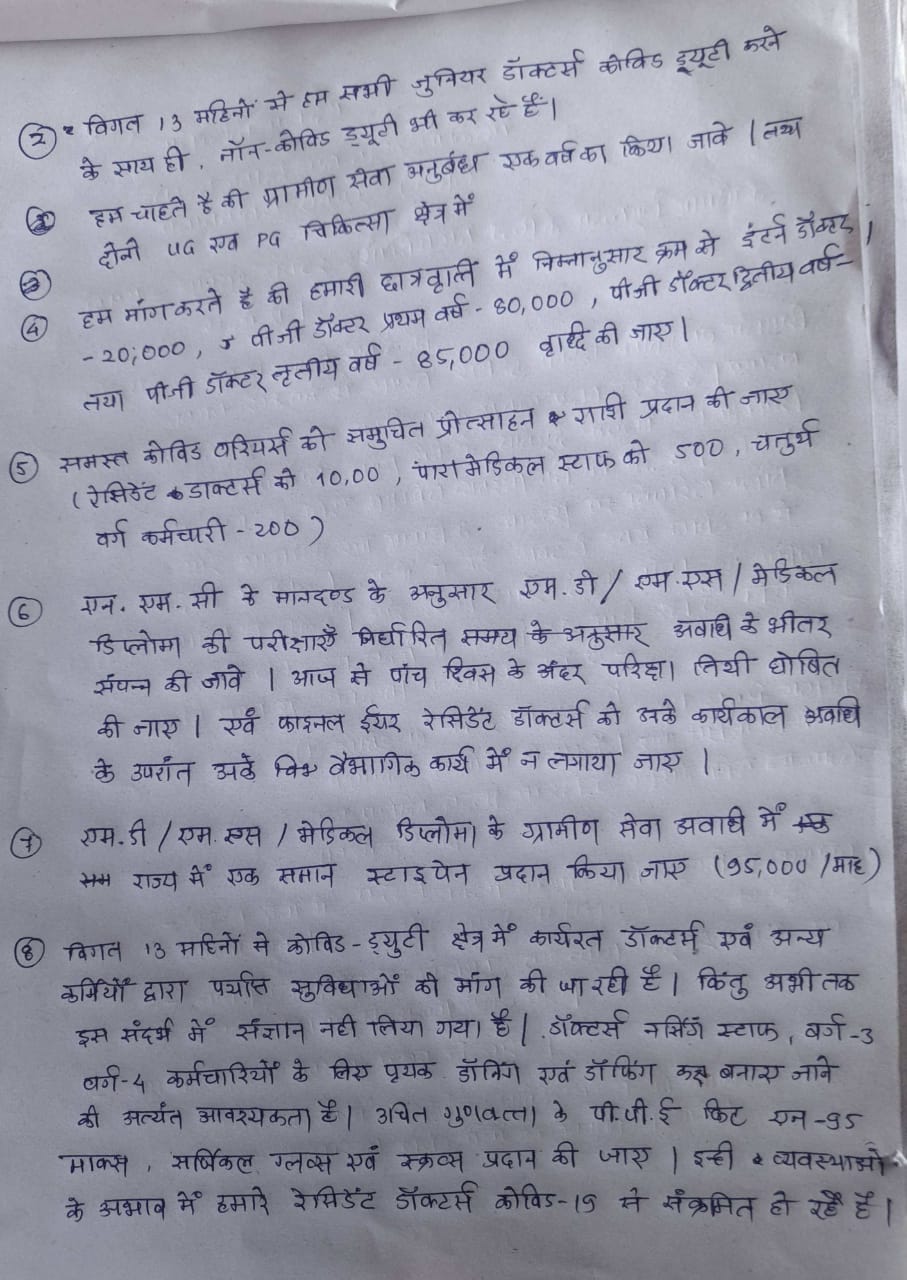 ② विगत 13 महिनों से हम सभी जुनियर डॉक्टर्स कोविड ड्यूटी करने
के साथ ही, नॉन-कोविड ड्यूटी भी कर रहे हैं।
हम चाहते है की ग्रामीण सेवा अनुबंध एक वर्ष का किया जावे । तथा
③ दोनो UG एवं PG चिकित्सा क्षेत्र में
④ हम मांग करते है की हमारी छात्रवृति में निम्नानुसार क्रम से इंटर्न डॉक्टर
- 20,000, पी जी डॉक्टर प्रथम वर्ष - 80,000, पीजी डॉक्टर द्वितीय वर्ष -
तथा पीजी डॉक्टर तृतीय वर्ष - 85,000 वृध्दि की जाए।
⑤ समस्त कोविड वरियर्स को समुचित प्रोत्साहन राशी प्रदान की जाए
(रेसिडेंट डाक्टर्स को 10,00, पारामेडिकल स्टाफ को 500, चतुर्थ
वर्ग कर्मचारी - 200)
⑥ एन. एम. सी के मानदण्ड के अनुसार एम. डी / एम.एस / मेडिकल
डिप्लोमा की परीक्षाएँ निर्धारित समय के अनुसार अवधि के भीतर
संपन्न की जावे । आज से पांच दिवस के अंदर परिक्षा तिथी घोषित
की जाए । एवं फाइनल ईयर रेसिडेंट डॉक्टर्स को उनके कार्यकाल अवधि
के उपरांत उनके वैभागिक कार्य में न लगाया जाए ।
⑦ एम. डी / एम. एस / मेडिकल डिप्लोमा के ग्रामीण सेवा अवधि में
राज्य में एक समान स्टाइपेन प्रदान किया जाए (95,000 /माह)
⑧ विगत 13 महिनों से कोविड-ड्युटी क्षेत्र में कार्यरत डॉक्टर्स एवं अन्य
कर्मियों द्वारा पर्याप्त सुविधाओं की मांग की जा रही है । किंतु अभी तक
इस संदर्भ में संज्ञान नही लिया गया है । डॉक्टर्स नर्सिंग स्टाफ, वर्ग-3
वर्ग-4 कर्मचारियों के लिए पृथक डॉनिंग एवं डॉफिंग कक्ष बनाए जाने
की अत्यंत आवश्यकता है। उचित गुणवत्ता के पी.पी.ई किट एन-95
मास्क, सर्जिकल ग्लव्स एवं स्क्रब्स प्रदान की जाए । इन्ही व्यवस्थाओं
के अभाव में हमारे रेसिडेंट डॉक्टर्स कोविड-19 से संक्रमित हो रहे है ।